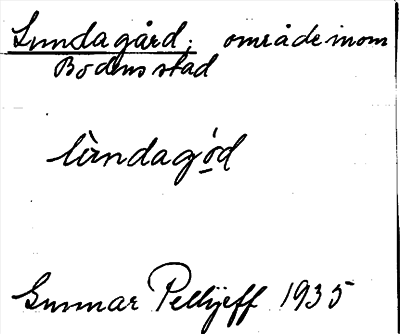 Lundagård; område inom
Bodens stad
lùndagó̲d
Gunnar Pellijeff 1935